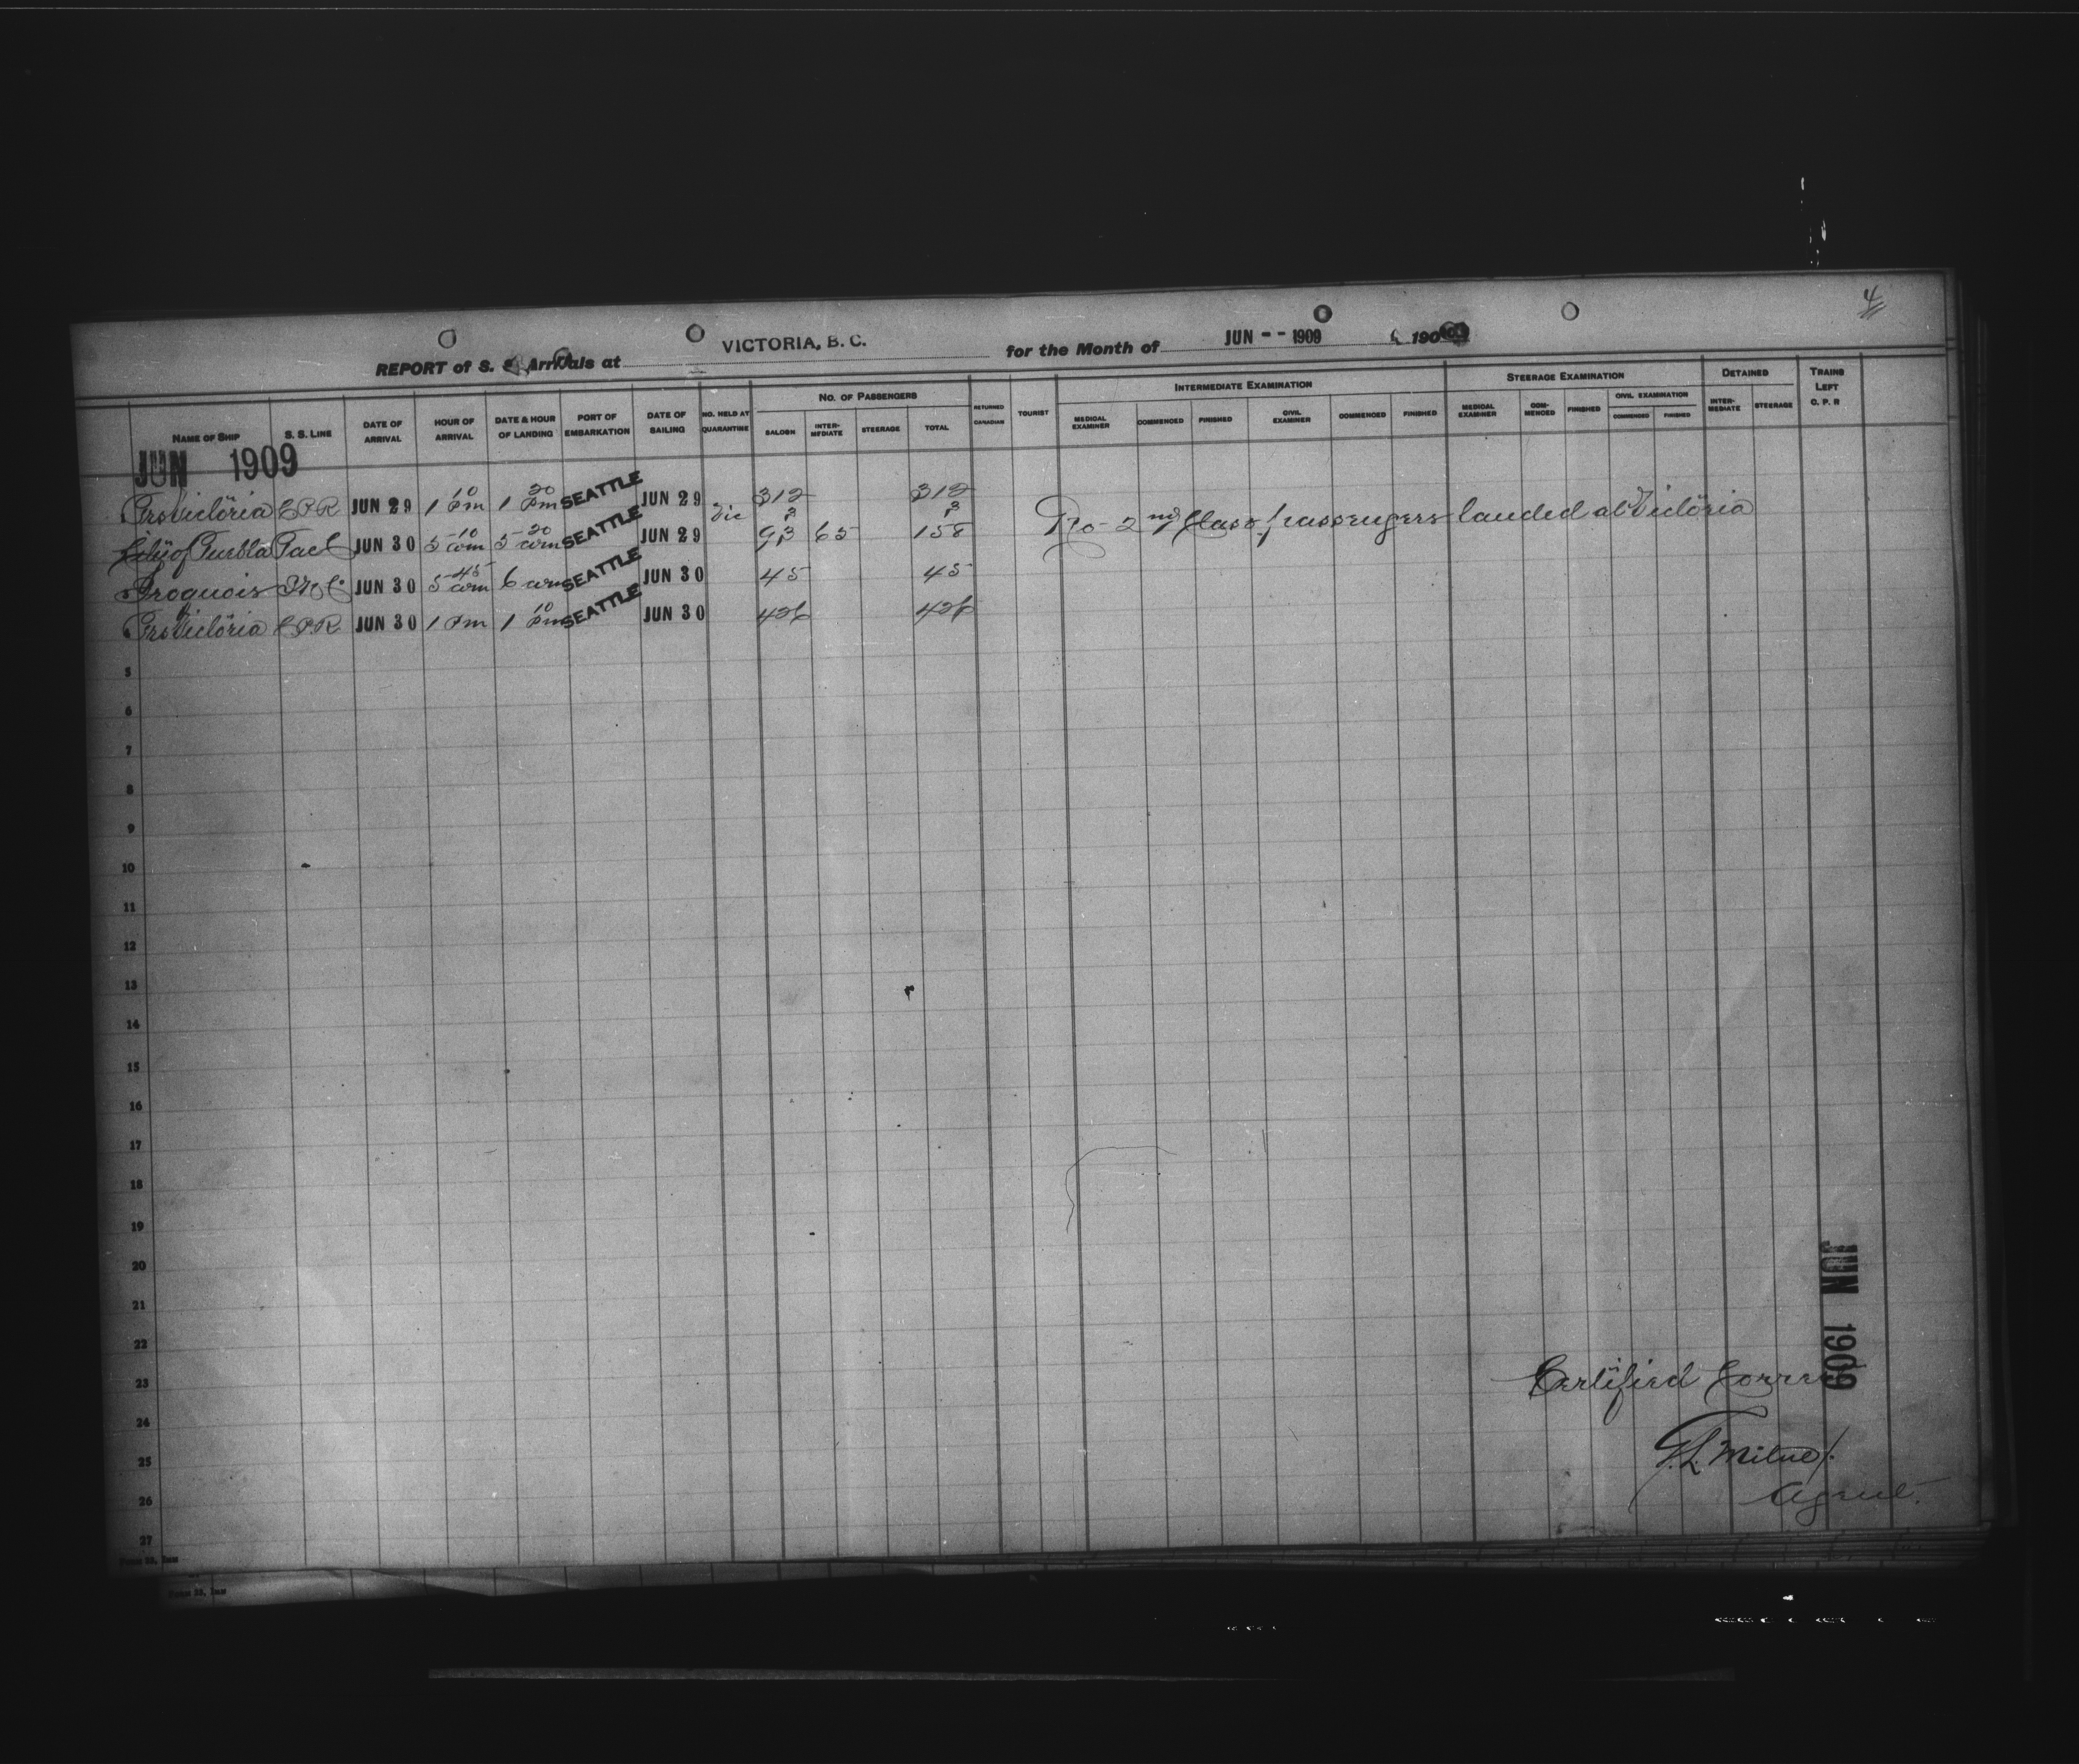 4
REPORT of S. S. Arrivals at VICTORIA, B. C. for the Month of JUN -- 1909 190
NAME OF SHIP S. S. LINE DATE OF ARRIVAL HOUR OF ARRIVAL DATE & HOUR OF LANDING PORT OF EMBARKATION DATE OF SAILING NO. HELD AT QUARANTINE NO. OF PASSENGERS SALOON INTER-MEDIATE STEERAGE TOTAL RETURNED CANADIAN TOURIST INTERMEDIATE EXAMINATION MEDICAL EXAMINER COMMENCED FINISHED CIVIL EXAMINER COMMENCED FINISHED STEERAGE EXAMINATION MEDICAL EXAMINER COM-MENCED FINISHED CIVIL EXAMINATION COMMENCED FINISHED DETAINED INTER-MEDIATE STEERAGE TRAINS LEFT C. P. R
JUN 1909
Prs Victoria C.P.R JUN 29 1 10 Pm 1 20 Pm SEATTLE JUN 29 312 312
Vic 3 3 No - 2nd Class passengers landed at Victoria
City of Puebla Pacf JUN 30 5 10 am 5 20 am SEATTLE JUN 29 93 65 158
Iroquois JUN 30 5 45 am 6 am SEATTLE JUN 30 45 45
Prs Victoria C.P.R JUN 30 1 Pm 1 10 Pm SEATTLE JUN 30 426 426
5
6
7
8
9
10
11
12
13
14
15
16
17
18
19
20
21
22
23
24
25
26
27
JUN 1909
Certified Correct
G.L. Milne
Agent.
Form 23. Imm
Form 23. Imm